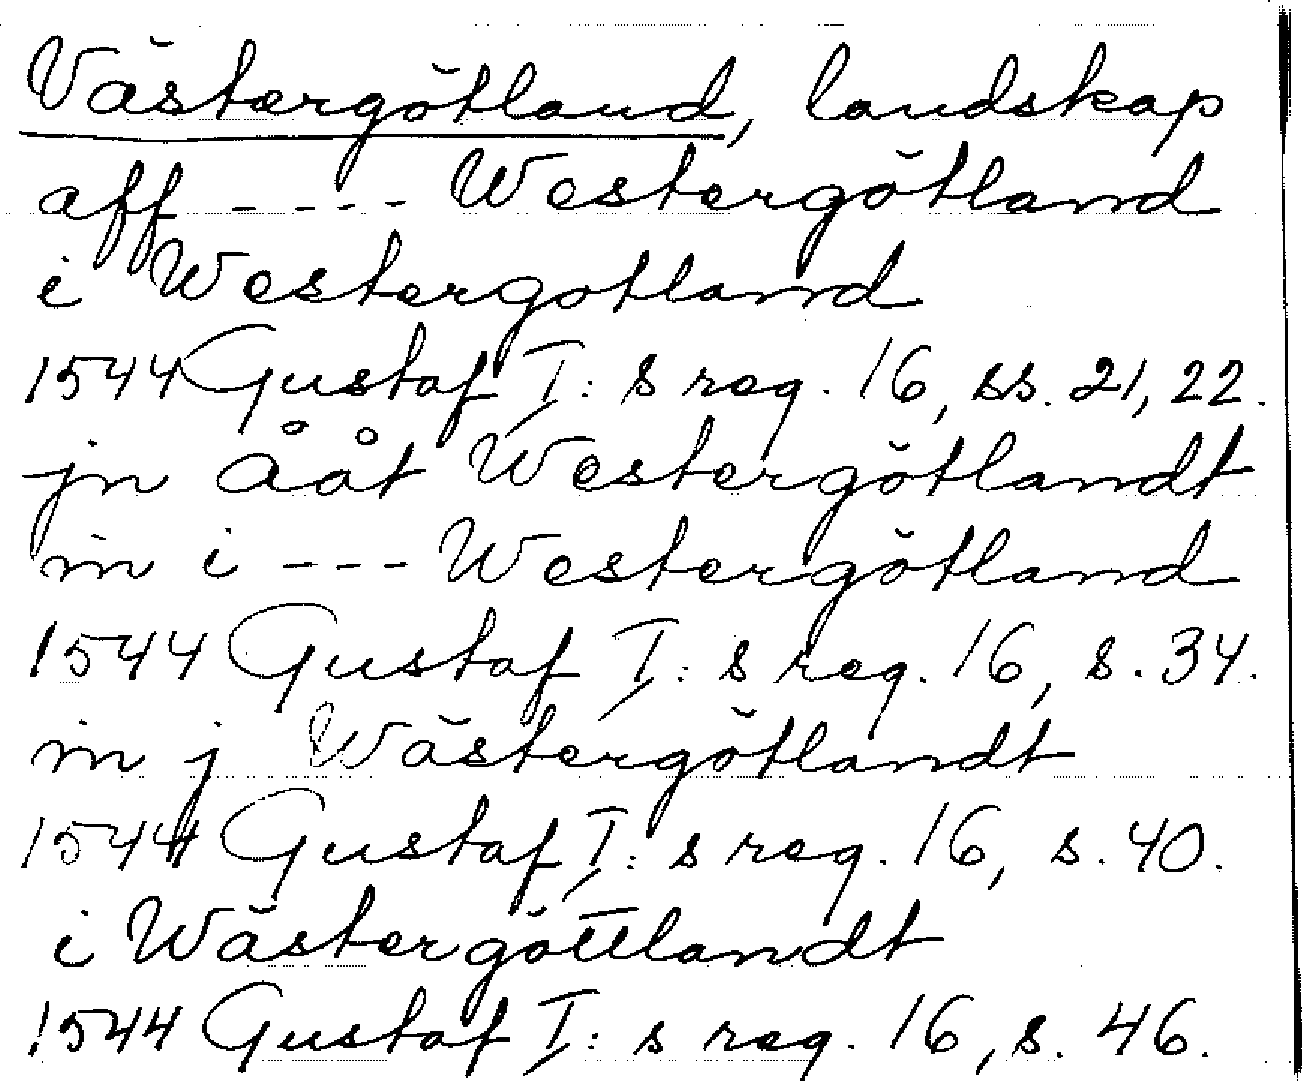 Västergötland, landskap
aff - - - - Westergötland
i Westergotland
1544 Gustaf I: s reg. 16, ss. 21, 22.
jn ååt Westergötlandt
in i - - - Westergötland
1544 Gustaf I: s reg. 16, s. 34.
in j Wästergötlandt
1544 Gustaf I: s reg. 16, s. 40.
i Wästergöttlandt
1544 Gustaf I: s reg. 16, s. 46.